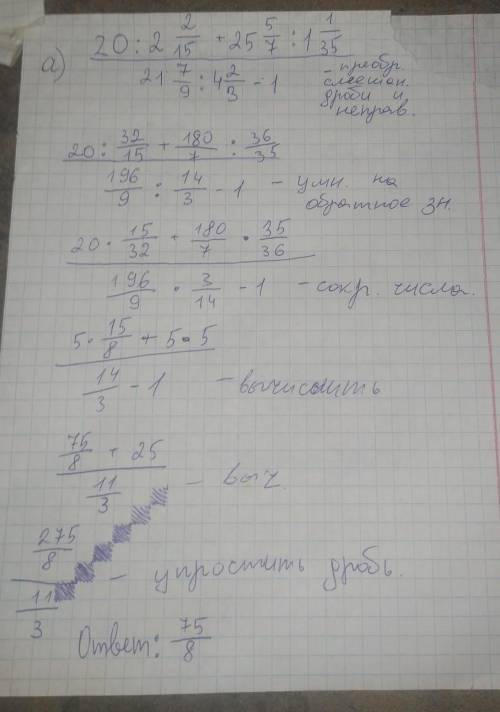 а) 20 : 2 2/15 + 25 5/7 : 1 1/35
21 7/9 : 4 2/3 - 1
- преобр.
смешан.
дроби и
неправ.
20 : 32/15 + 180/7 : 36/35
196/9 : 14/3 - 1 - умн. на
обратное зн.
20 · 15/32 + 180/7 · 35/36
196/9 · 3/14 - 1 - сокр. числа.
5 · 15/8 + 5 · 5
14/3 - 1 - вычислить
75/8 + 25
11/3 - выч
275/8
11/3 - упростить дробь.
Ответ: 75/8